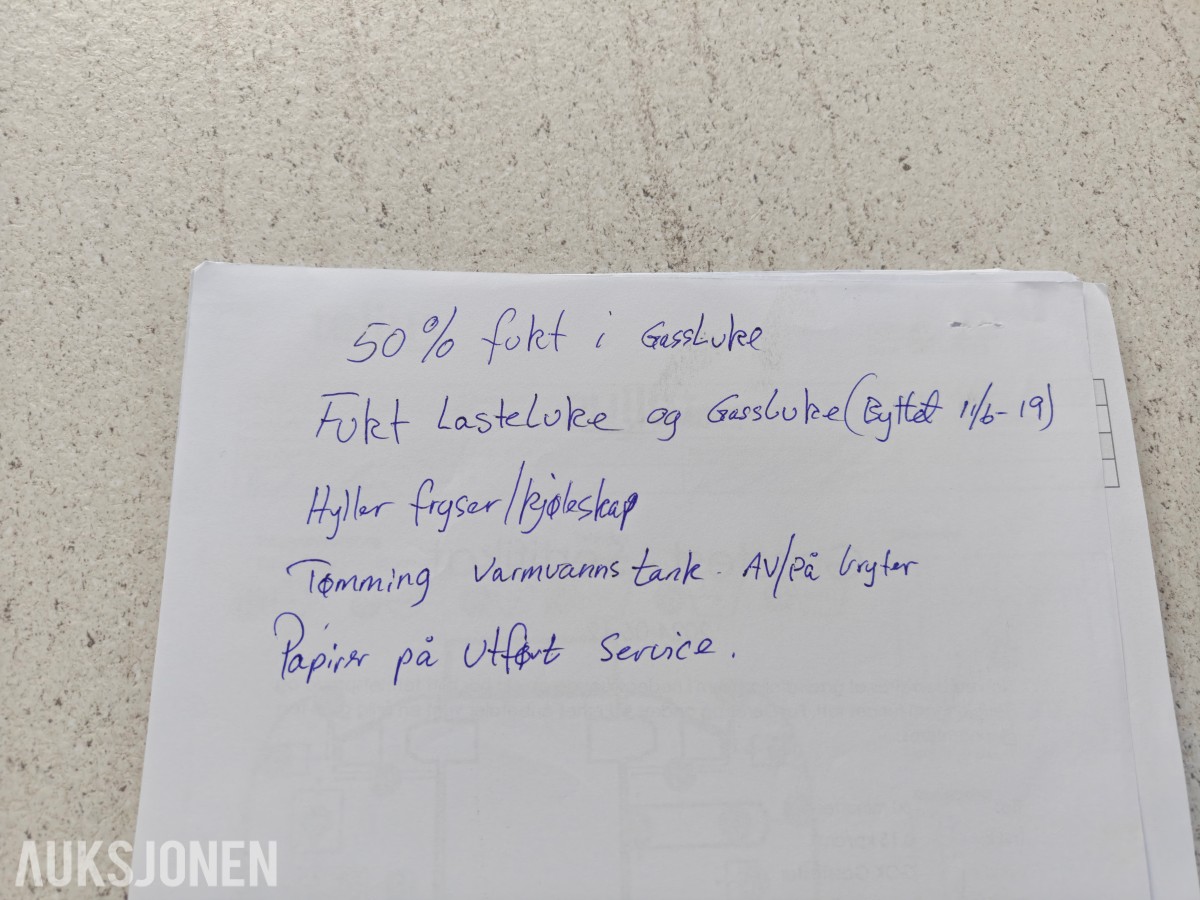 50% fukt i Gassluke
Fukt Lasteluke og Gassluke (Byttet 11/6-19)
Hyller fryser/kjøleskap
Tømming varmvanns tank. AV/På bryter
Papirer på utført service.
AUKSJONEN